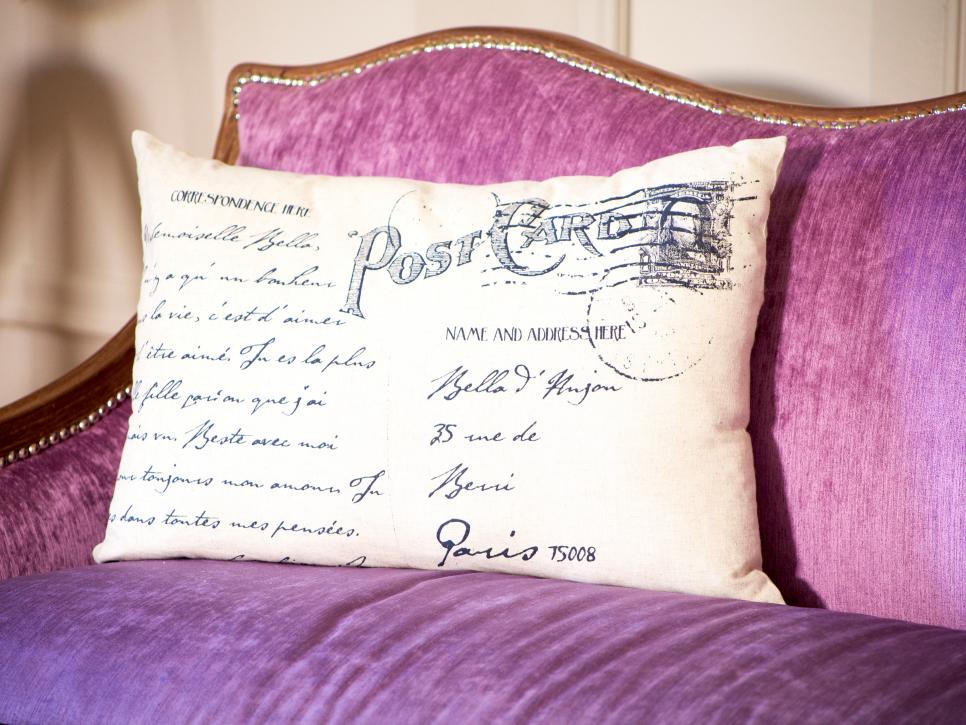 CORRESPONDENCE HERE
POST CARD
emoiselle Bella,
'y a qu' un bonheur
la vie, c'est d' aimer
d'être aimé. Tu es la plus
fille parion que j ai
ais vu. Reste avec moi
toujours mon amour. Tu
s dans toutes mes pensées.
NAME AND ADDRESS HERE
Bella d' Anjou
35 rue de
Berri
Paris 75008